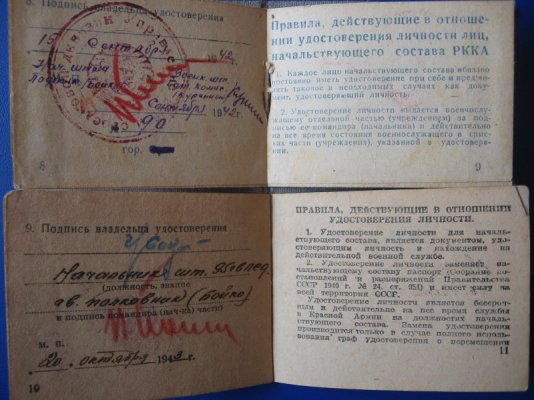 8. Подпись владельца удостоверения
15 Сентября 1942 г.
Нач. штаба
Сентября 1942 г.
90
гор.
8
Правила, действующие в отноше-
нии удостоверения личности лиц,
начальствующего состава РККА
1. Каждое лицо начальствующего состава обязано
постоянно иметь удостоверение при себе и предъяв-
лять таковое в необходимых случаях как доку-
мент, удостоверяющий личность
2. Удостоверение личности выдается военнослу-
жащему отдельной частью (учреждением) за под-
писью ее командира (начальника) и действительно
на все время состояния военнослужащего в спис-
ках части (учреждения), указанной в удостовере-
нии.
9
9. Подпись владельца удостоверения
Начальник шт.
(должность, звание
гв. полковник (Бойко)
и подпись командира (нач-ка) части)
М. П.
20 октября 1943 г.
10
ПРАВИЛА, ДЕЙСТВУЮЩИЕ В ОТНОШЕНИИ
УДОСТОВЕРЕНИЯ ЛИЧНОСТИ.
1. Удостоверение личности для началь-
ствующего состава, является документом, удо-
стоверяющим личность и нахождение на
действительной военной службе.
2. Удостоверение личности заменяет на-
чальствующему составу паспорт (Собрание по-
становлений и распоряжений Правительства
СССР 1940 г. № 24, ст. 251) и имеет силу на
всей территории СССР.
Удостоверение личности является бессроч-
ным и действительно на все время службы
в Красной Армии на должностях начальству-
ющего состава. Замена удостоверения
производится только в случае полного исполь-
зования граф удостоверения о перемещении
11